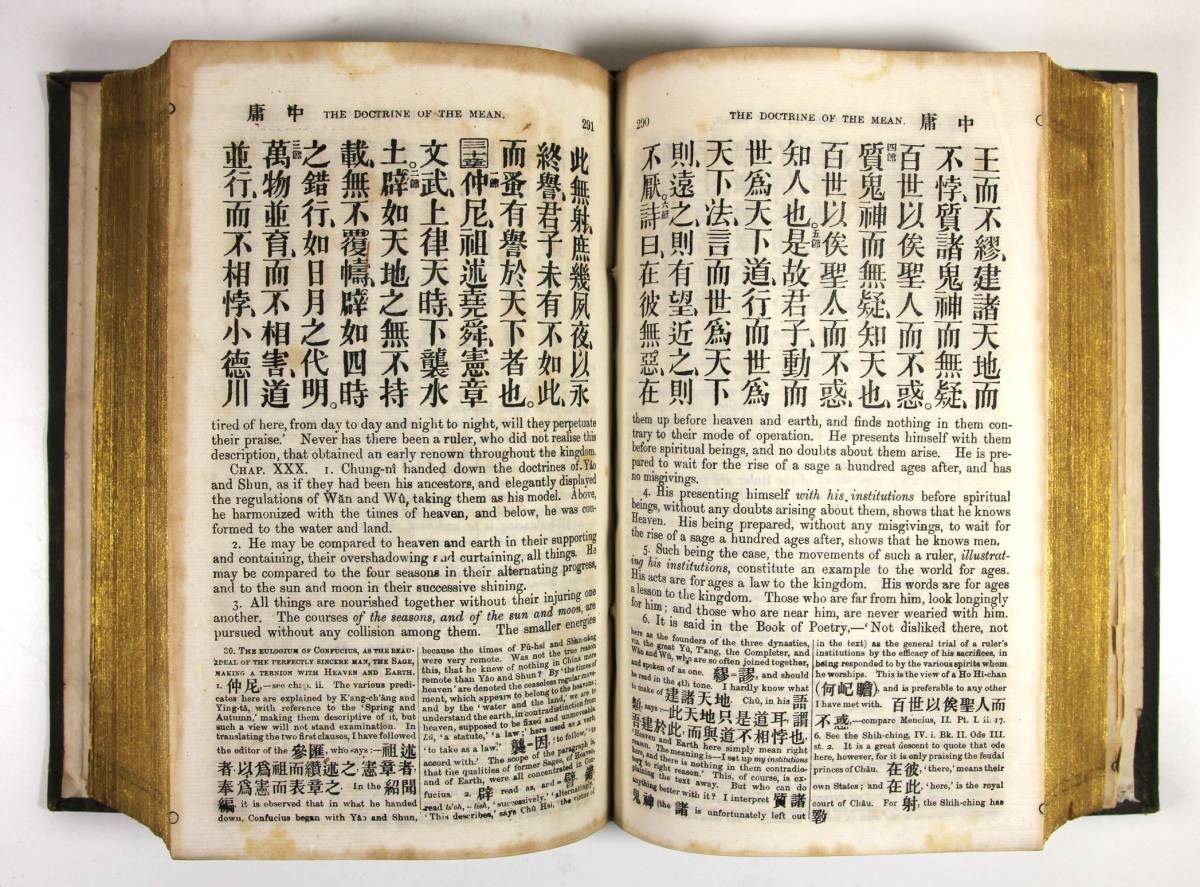 290
THE DOCTRINE OF THE MEAN. 庸 中
王而不繆、建諸天地而
不悖、質諸鬼神而無疑、
百世以俟聖人而不惑。
四節質鬼神而無疑、知天也、
百世以俟聖人而不惑、
知人也。五節是故君子、動而
世爲天下道、行而世爲
天下法、言而世爲天下
則、遠之、則有望、近之、則
不厭。六節詩曰、在彼無惡、在
them up before heaven and earth, and finds nothing in them con-
trary to their mode of operation. He presents himself with them
before spiritual beings, and no doubts about them arise. He is pre-
pared to wait for the rise of a sage a hundred ages after, and has
no misgivings.
4. His presenting himself with his institutions before spiritual
beings, without any doubts arising about them, shows that he knows
Heaven. His being prepared, without any misgivings, to wait for
the rise of a sage a hundred ages after, shows that he knows men.
5. Such being the case, the movements of such a ruler, illustrat-
ing his institutions, constitute an example to the world for ages.
His acts are for ages a law to the kingdom. His words are for ages
a lesson to the kingdom. Those who are far from him, look longingly
for him; and those who are near him, are never wearied with him.
6. It is said in the Book of Poetry,—'Not disliked there, not
here as the founders of the three dynasties,
viz. the great Yü, T'ang, the Completer, and
Wăn and Wû, who are so often joined together,
and spoken of as one. 繆=謬, and should
be read in the 4th tone. I hardly know what
to make of 建諸天地. Chû, in his 語
類, says:—此天地只是道耳、謂
吾建於此、而與道不相悖也,
'Heaven and Earth here simply mean right
reason. The meaning is—I set up my institutions
here, and there is nothing in them contradic-
tory to right reason.' This, of course, is ex-
plaining the text away. But who can do
anything better with it? I interpret 質諸
鬼神 (the 諸 is unfortunately left out
in the text) as the general trial of a ruler's
institutions by the efficacy of his sacrifices, in
being responded to by the various spirits whom
he worships. This is the view of a Ho Hî-chan
(何屺瞻), and is preferable to any other
I have met with. 百世以俟聖人而
不惑,—compare Mencius, II. Pt. I. ii. 17.
6. See the Shih-ching, IV. i. Bk. II. Ode III.
st. 2. It is a great descent to quote that ode
here, however, for it is only praising the feudal
princes of Châu. 在彼, 'there,' means their
own States; and 在此, 'here,' is the royal
court of Châu. For 射, the Shih-ching has
斁
庸 中 THE DOCTRINE OF THE MEAN.
291
此無射、庶幾夙夜、以永
終譽、君子未有不如此、
而蚤有譽於天下者也。
三十章一節仲尼祖述堯舜、憲章
文武、上律天時、下襲水
土。二節辟如天地之無不持
載、無不覆幬、辟如四時
之錯行、如日月之代明。
三節萬物並育、而不相害、道
並行、而不相悖、小德川
tired of here, from day to day and night to night, will they perpetuate
their praise.' Never has there been a ruler, who did not realise this
description, that obtained an early renown throughout the kingdom.
CHAP. XXX. 1. Chung-nî handed down the doctrines of Yâo
and Shun, as if they had been his ancestors, and elegantly displayed
the regulations of Wăn and Wû, taking them as his model. Above,
he harmonized with the times of heaven, and below, he was con-
formed to the water and land.
2. He may be compared to heaven and earth in their supporting
and containing, their overshadowing and curtaining, all things. He
may be compared to the four seasons in their alternating progress,
and to the sun and moon in their successive shining.
3. All things are nourished together without their injuring one
another. The courses of the seasons, and of the sun and moon, are
pursued without any collision among them. The smaller energies
30. THE EULOGIUM OF CONFUCIUS, AS THE BEAU-
IDEAL OF THE PERFECTLY SINCERE MAN, THE SAGE,
MAKING A TERNION WITH HEAVEN AND EARTH.
1. 仲尼,—see chap. ii. The various predi-
cates here are explained by K'ang-ch'ăng and
Ying-tâ, with reference to the 'Spring and
Autumn,' making them descriptive of it, but
such a view will not stand examination. In
translating the two first clauses, I have followed
the editor of the 參匯, who says:—祖述
者、以爲祖而纘述之、憲章者、
奉爲憲而表章之. In the 紹聞
編 it is observed that in what he handed
down, Confucius began with Yâo and Shun,
because the times of Fû-hsî and Shăn-năng
were very remote. Was not the true reason
this, that he knew of nothing in China more
remote than Yâo and Shun? By 'the times of
heaven' are denoted the ceaseless regular move-
ment, which appears to belong to the heavens;
and by the 'water and the land,' we are to
understand the earth, in contradistinction from
heaven, supposed to be fixed and unmoveable.
Lü, 'a statute,' 'a law;' here used as a verb,
'to take as a law.' 襲=因, 'to follow,' 'to
accord with.' The scope of the paragraph is,
that the qualities of former Sages, of Heaven,
and of Earth, were all concentrated in Con-
fucius. 2. 辟 read as, and=譬. 錯
read ts'oh,=tieh, 'successively,' 'alternatingly.'
'This describes,' says Chû Hsî, 'the virtue of